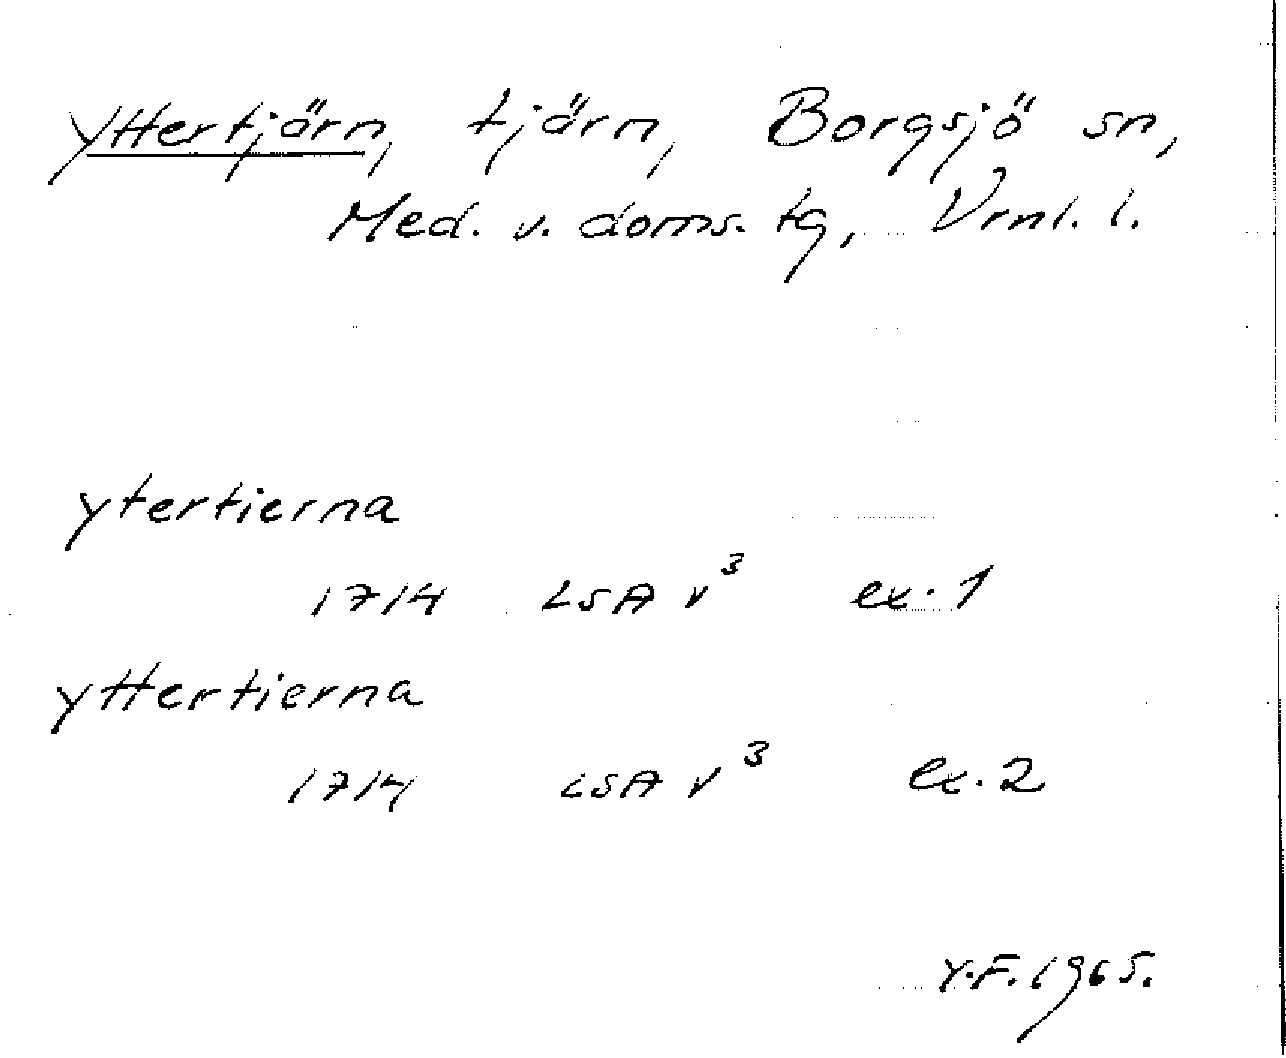 Yttertjärn, tjärn, Borgsjö sn,
Med. v. doms. tg, Vrnl. l.
ytertierna
1714 LSA v³ ex. 1
yttertierna
1714 LSA v³ ex. 2
Y.F. 1965.